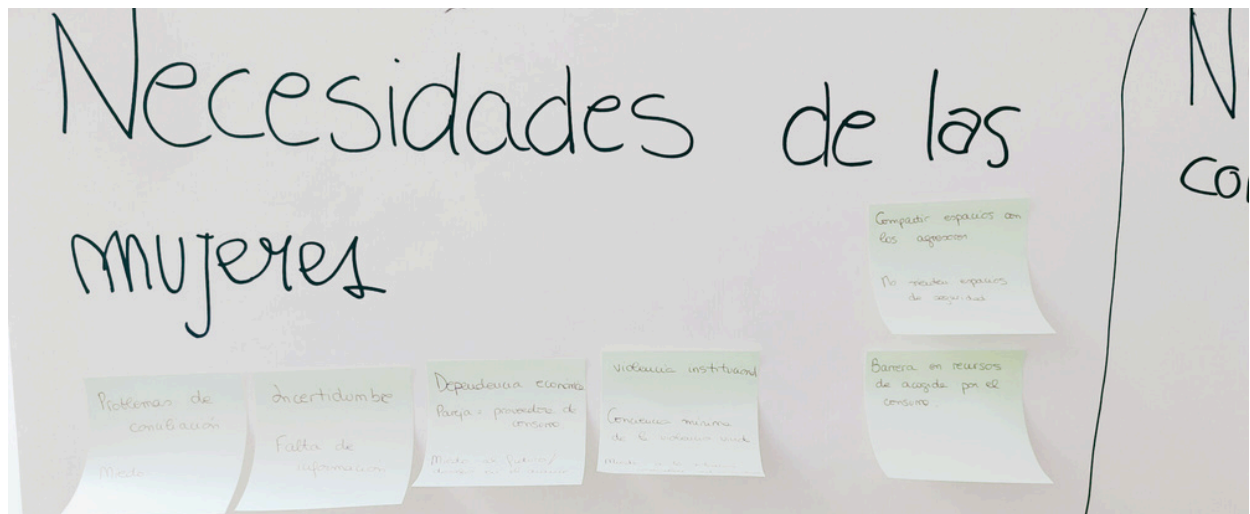 Necesidades de las
mujeres
N
co
Compartir espacios con
los agresores
No
espacios
de seguridad
Barrera en recursos
de acogida por el
consumo
Problemas de
conciliación
Miedo
Incertidumbre
Falta de
información
Dependencia económica
Pareja = proveedora de
consumo
Miedo
violencia institucional
Conciencia mínima
de la violencia
Miedo